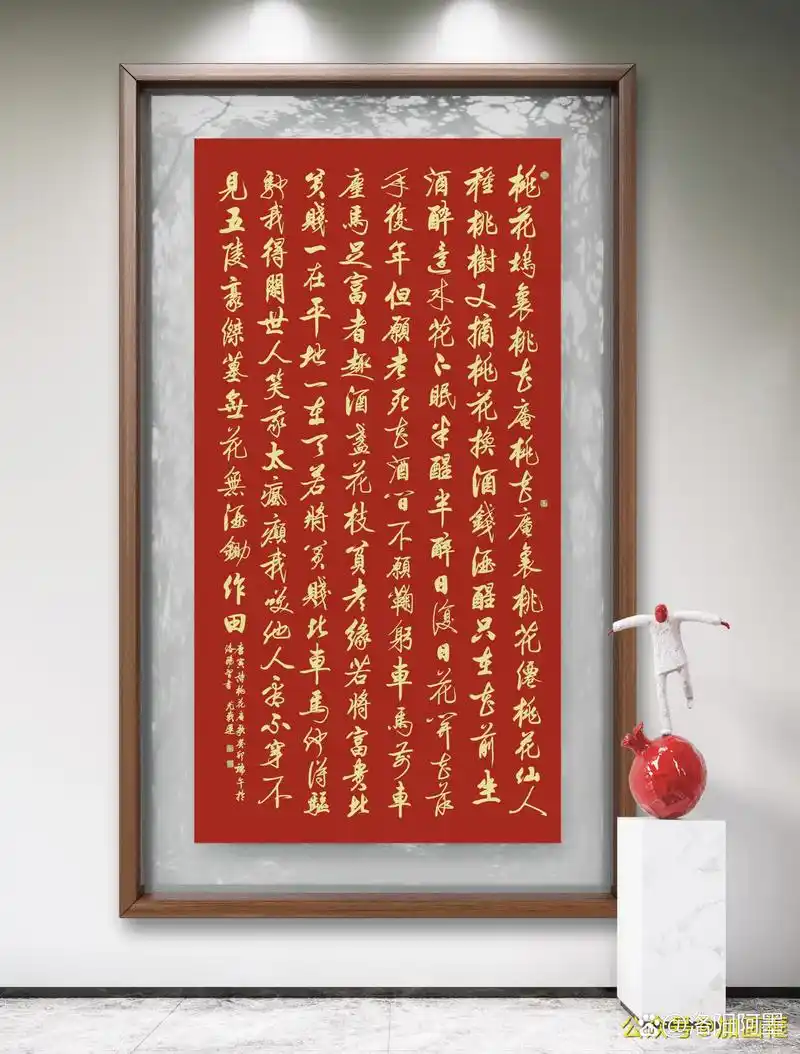 桃花塢裏桃花庵桃花庵裏桃花僊桃花仙人
種桃樹又摘桃花換酒錢酒醒只在花前坐
酒醉還來花下眠半醒半醉日復日花開花落
年復年但願老死花酒間不願鞠躬車馬前車
塵馬足富者趣酒盞花枝貧者緣若將富貴比
貧賤一在平地一在天若將貧賤比車馬他得驅
馳我得閑世人笑我太瘋癲我笑他人看不穿不
見五陵豪傑墓無花無酒鋤作田
唐寅詩桃花庵歌癸卯端午於
洛陽智書
公众号
洛阳阿墨